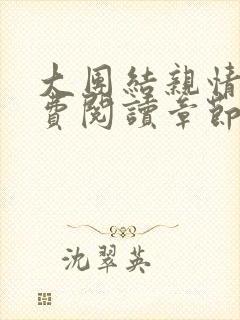 大團結親情
費閱讀章節
沈翠英